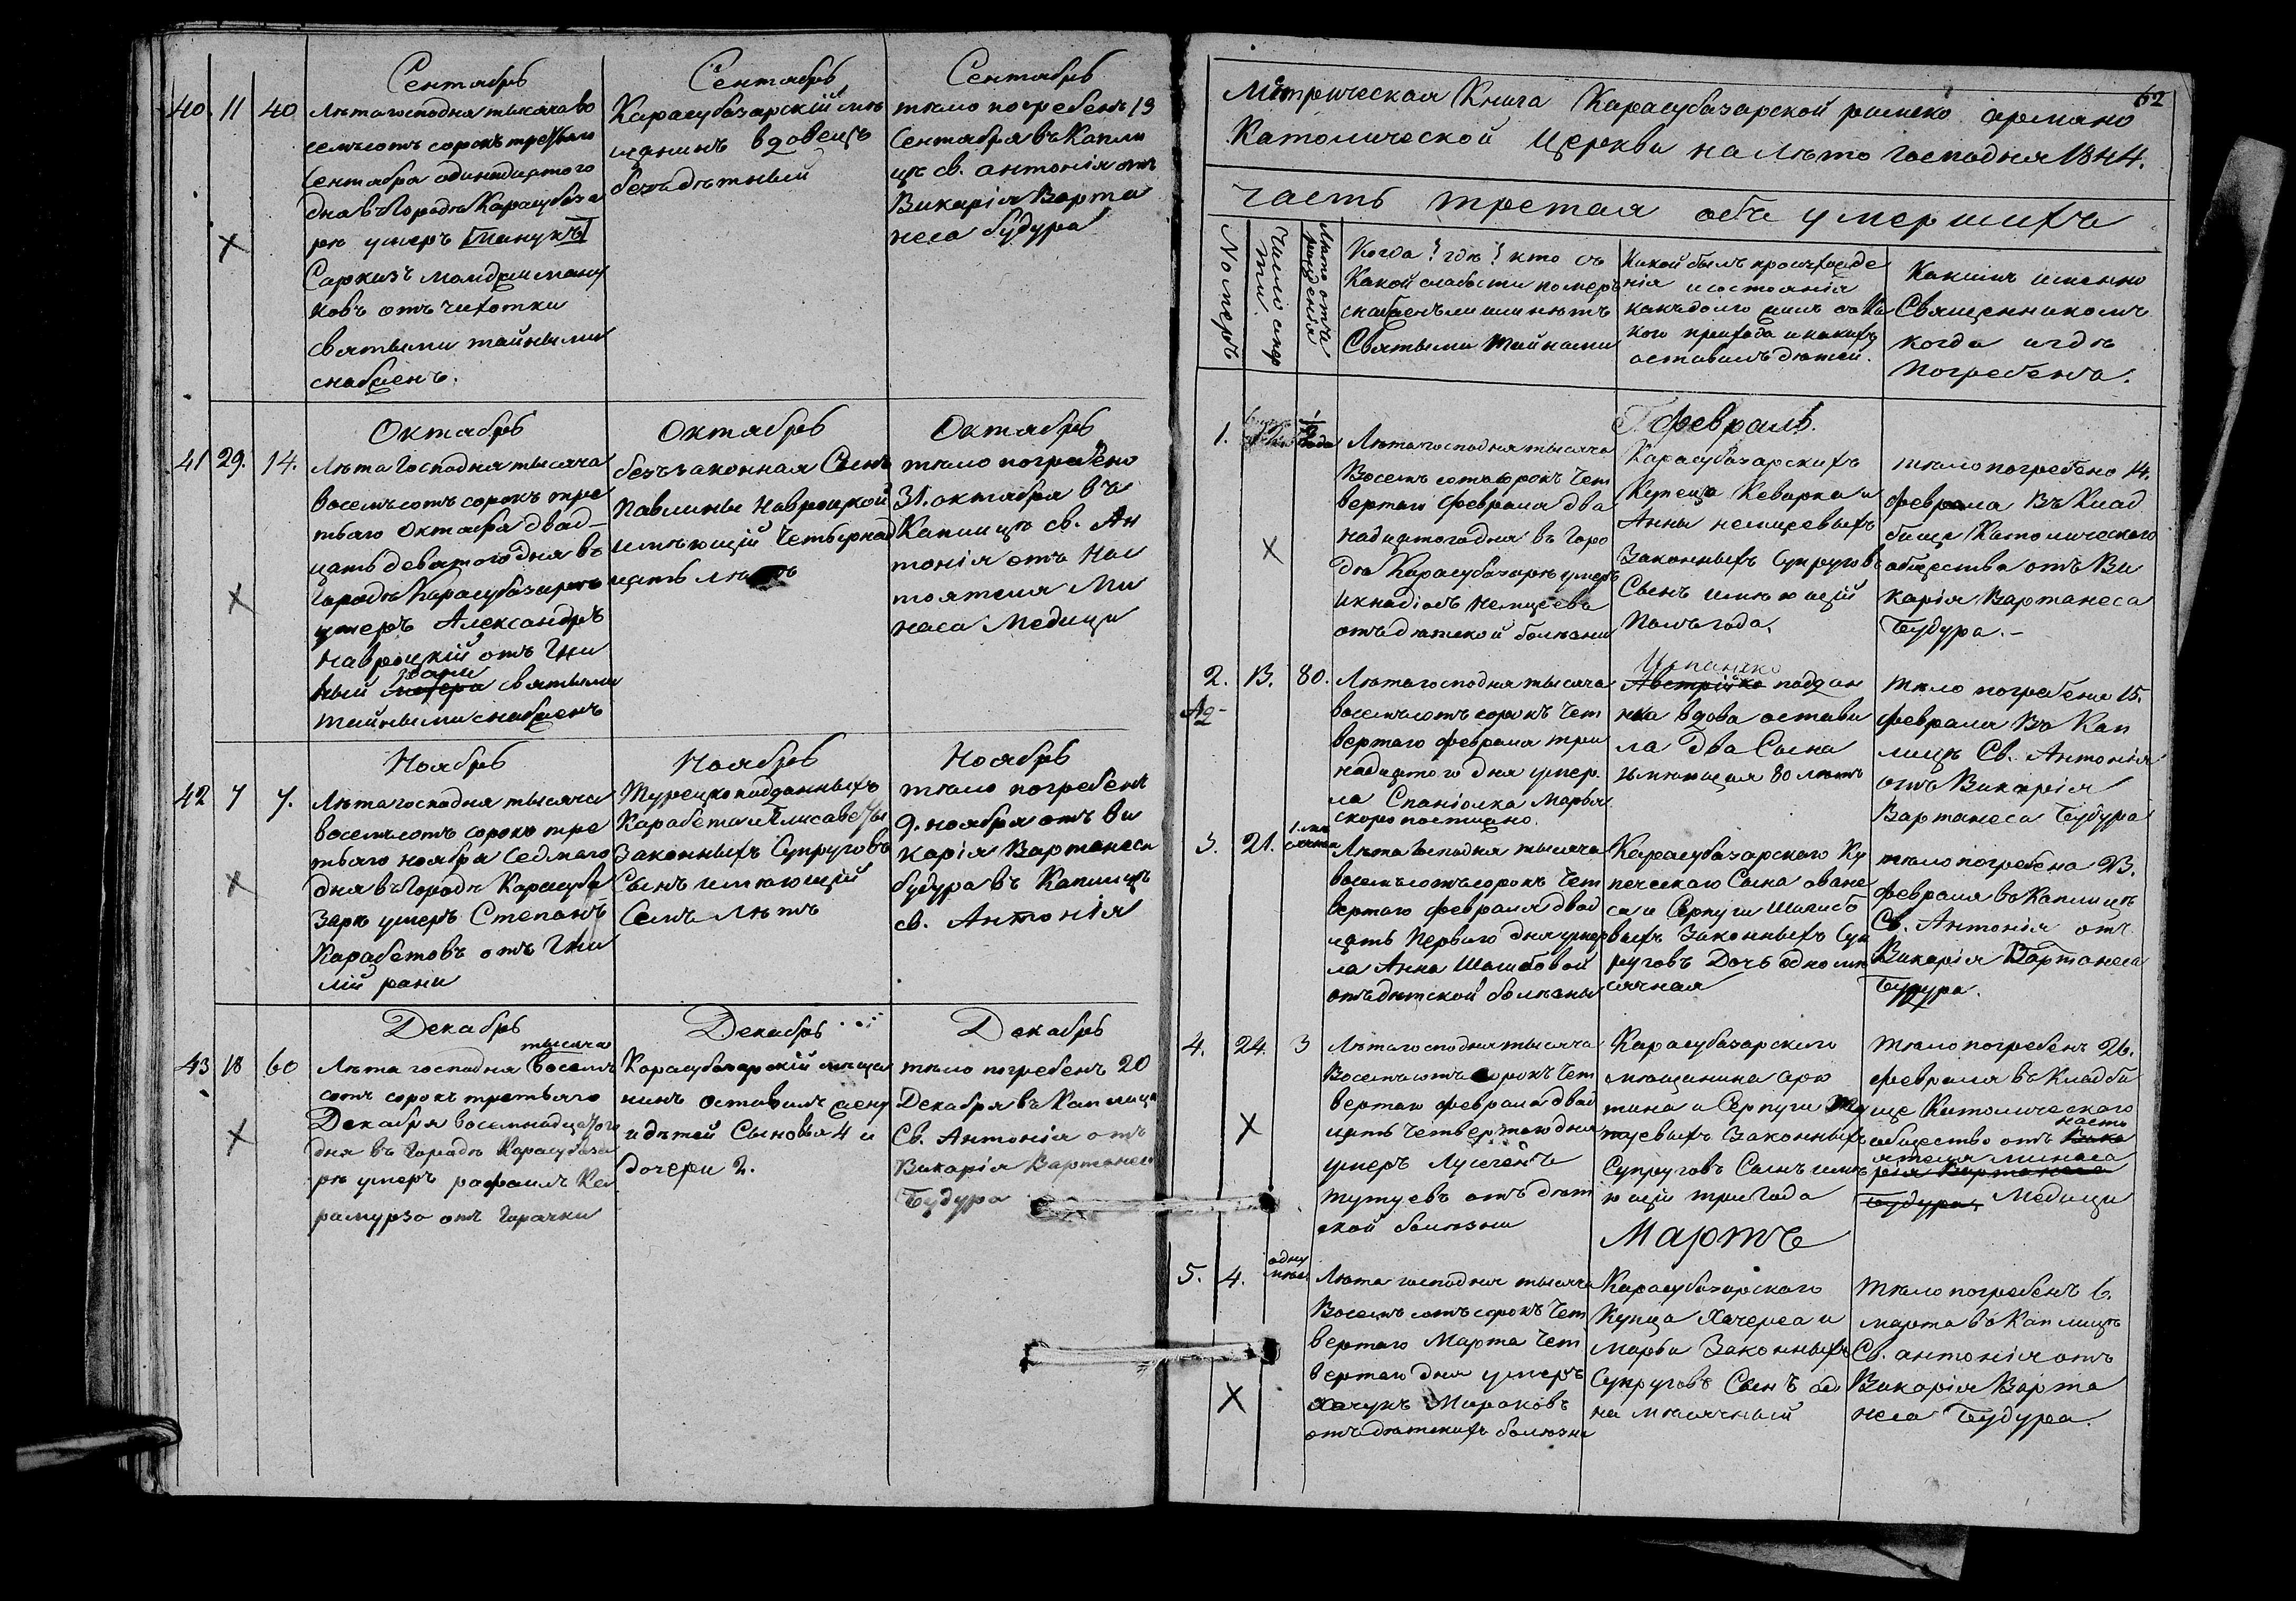 Сентябрь
40 11 40
Лѣта господня тысяча во
семьсотъ сорокъ третьяго
Сентября одинадцатого
дня въ Городѣ Карасубаза
рѣ умеръ Манукъ
Саркизъ
ковъ отъ чихотки
святыми тайными
снабженъ.
Сентябрь
Карасубазарскій мѣ
щанинъ вдовецъ
бездѣтный
Сентябрь
тѣло погребенъ 13
Сентября въ Капли
цѣ св. антонія отъ
Викарія Варта
неса будура
Октябрь
41 29. 14.
Лѣта Господня тысяча
восемьсотъ сорокъ тре
тьяго Октября двад-
цать девятого дня въ
Городѣ Карасубазарѣ
умеръ Александръ
Навроцкій отъ Гни
лый рани святыми
тайными снабженъ
Октябрь
безъзаконная Сынъ
Павлины Навроцкой
имѣющій Четырнад
цать лѣтъ
Октябрь
тѣло погребено
31. октября въ
Каплицѣ св. Ан
тонія отъ Нас
тоятеля Ми
наса Медици
Ноябрь
42 7 7.
Лѣта господня тысяча
восемьсотъ сорокъ тре
тьяго ноября Седмаго
дня въ Городѣ Карасуба
зарѣ умеръ Степанъ
Карабетовъ отъ Гни
лій рани
Ноябрь
Турецкоподданныхъ
Карабета и Елисаветы
Законныхъ Супруговъ
Сынъ имѣющій
Семь лѣтъ
Ноябрь
тѣло погребенъ
9. ноября отъ Ви
карія Вартанеса
будура въ Каплицѣ
св. Антонія
Декабрь
43 18 60
тысяча
Лѣта господня восемь
сотъ сорокъ третьяго
Декабря восемнадцатого
дня въ Городѣ Карасубаза
рѣ умеръ рафаилъ Ка
рамурза отъ Горячки
Декабрь
Карасубазарскій мѣща
нинъ оставилъ жену
и дѣтей Сыновья 4 и
дочери 2.
Декабрь
тѣло погребенъ 20
Декабря въ Каплицѣ
Св. Антонія отъ
Викарія Вартанеса
Будура
62
Метрическая Книга Карасубазарской римско армяно
Католической Церкви на лѣто господня 1844.
часть третая объ умершихъ
Номеръ
Число смер
ти.
Лѣто отъ
рожденія
Когда? гдѣ? кто съ
Какой слабости померъ
снабженъ или нѣтъ
Святыми Тайнами
Какой былъ происхожде
нія и состоянія
какъ долго жилъ съ Ка
кого прихода и какихъ
оставилъ дѣтей.
Какимъ именно
Священникомъ
когда и гдѣ
Погребенъ.
Февраль.
1. 12 ½ года
Лѣта господня тысяча
Восемь сотъ сорокъ Чет
вертаго Февраля два
надцатого дня въ Горо
дѣ Карасубазарѣ умеръ
Икнадіосъ Немцевъ
отъ дѣтской болѣзни
Карасубазарскихъ
Купеца Кеварка и
Анны немцевыхъ
Законныхъ Супруговъ
Сынъ имѣющій
Полъ года.
тѣло погребено 14.
февраля Въ Клад
бище Католическаго
общества отъ Ви
карія Вартанеса
Будура.-
2. 13. 80.
Лѣта господня тысяча
восемьсотъ сорокъ Чет
вертаго февраля три
надцатого дня умер
ла Спаніолка Марья
скоропостижно.
Испанско
Австрійско поддан
нка вдова остави
ла Два Сына
имѣющая 80 лѣтъ
Тѣло погребено 15.
февраля Въ Кап
лицѣ Св. Антонія
отъ Викарія
Вартанеса Будура
3. 21. 1. мѣ
сяца
Лѣта Господня тысяча
восемьсотъ сорокъ Чет
вертаго февраля двад
цать Перваго дня умер
ла Анна Шашбовой
отъ дѣтской болѣзны
Карасубазарского Ку
печескаго Сына оване
са и Серпуги Шашбо
выхъ Законныхъ Суп
руговъ Дочь одномѣ
сячная
тѣло погребена 23.
февраля въ Каплицѣ
Св. Антонія отъ
Викарія Вартанеса
Будура.
4. 24. 3
Лѣта господня тысяча
Восемьсотъ сорокъ Чет
вертаго февраля двад
цать Четвертаго дня
умеръ Лусегенъ
Тутуевъ отъ дѣт
ской болѣзни
Карасубазарского
мѣщанина арю
тина и Серпуги Ту
туевыхъ Законныхъ
Супруговъ Сынъ имѣ
ющій три Года
Тѣло погребенъ 26.
февраля въ Кладби
ще Католического
общество отъ Вика насто
рія Вартанеса ятеля минаса
Будура, Медици
Мартъ
5. 4. одну
мѣся
Лѣта господня тысяча
Восемь сотъ сорокъ Чет
вертаго Марта Чет
вертаго дня умеръ
Хачукъ Мироковъ
отъ дѣтскихъ болѣзни
Карасубазарского
Купца Хачереса и
Марьи Законныхъ
Супруговъ Сынъ од
на мѣсячный
Тѣло погребенъ 6.
марта въ Каплицѣ
Св. антонія отъ
Викарія Варта
неса Будура.